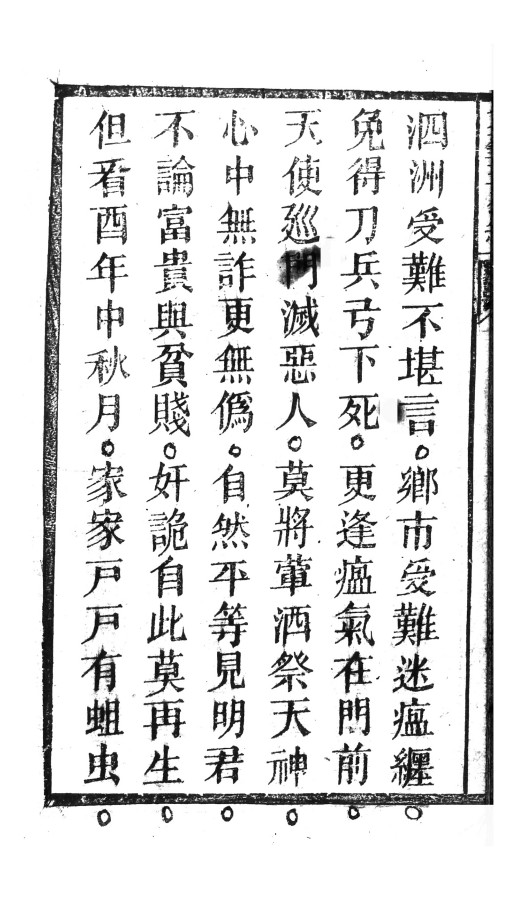 泗洲受難不堪言。鄉市受難迷瘟纏。
免得刀兵弓下死。更逢瘟氣在門前。
天使廵門滅惡人。莫將葷洒祭天神。
心中無詐更無偽。自然平等見明君。
不論富貴與貧賤。奸詭自此莫再生。
但看酉年中秋月。家家戸戸有蛆虫。